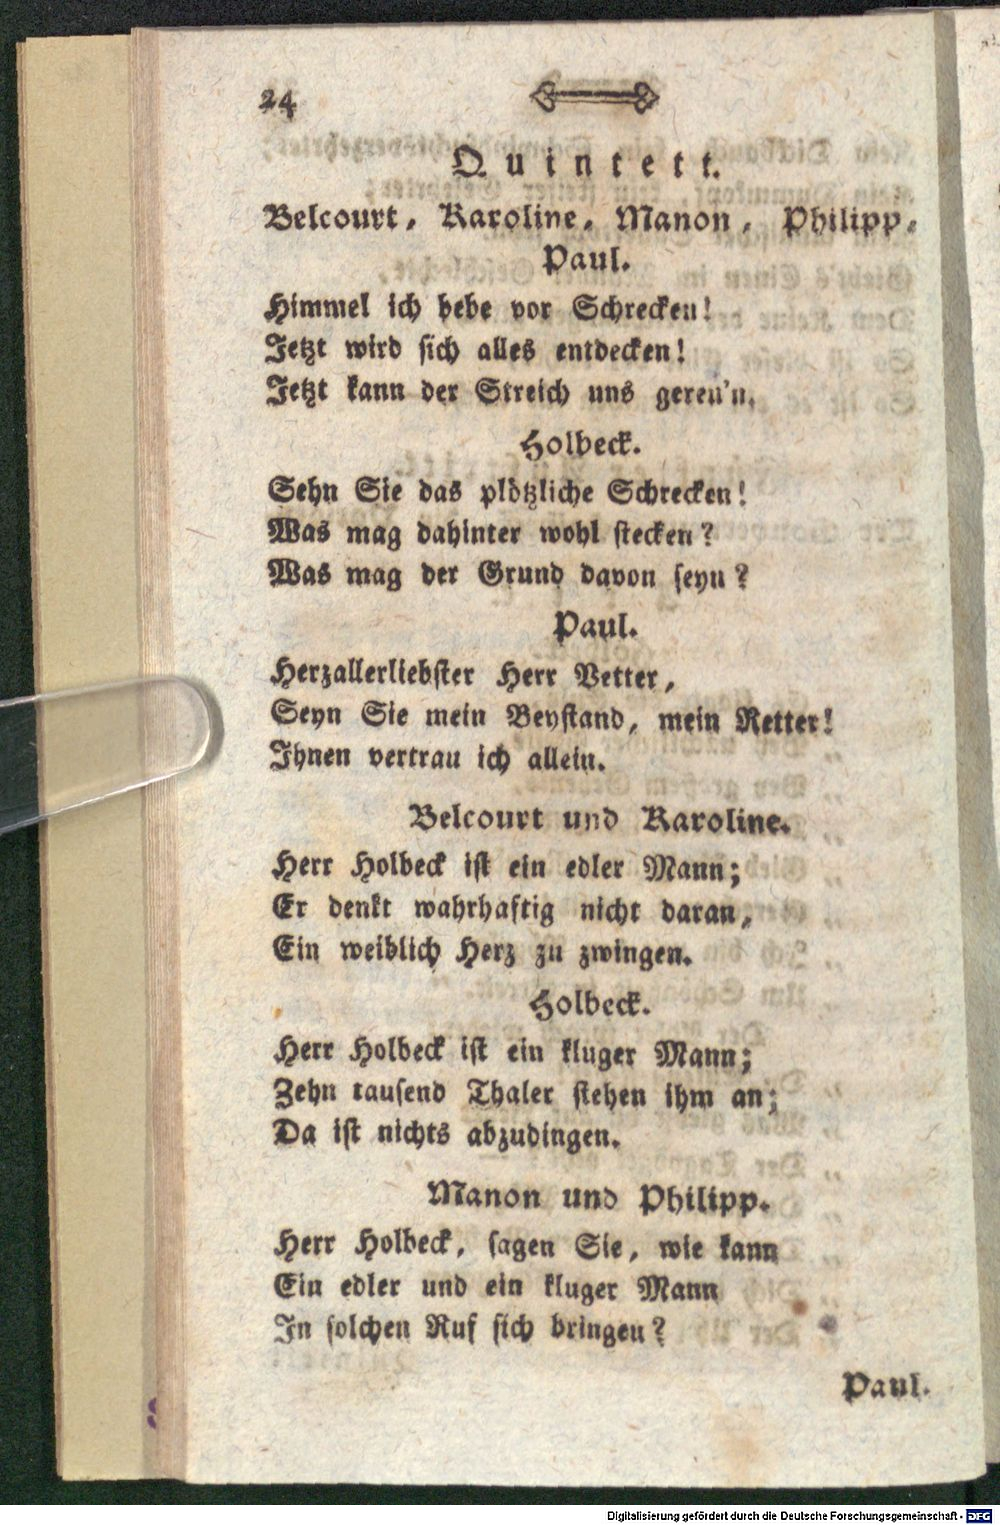 24
Quintett.
Belcourt, Karoline, Manon, Philipp,
Paul.
Himmel ich bebe vor Schrecken!
Jetzt wird sich alles entdecken!
Jetzt kann der Streich uns gereu'n.
Holbeck.
Sehn Sie das plötzliche Schrecken!
Was mag dahinter wohl stecken?
Was mag der Grund davon seyn?
Paul.
Herzallerliebster Herr Vetter,
Seyn Sie mein Beystand, mein Retter!
Ihnen vertrau ich allein.
Belcourt und Karoline.
Herr Holbeck ist ein edler Mann;
Er denkt wahrhaftig nicht daran,
Ein weiblich Herz zu zwingen.
Holbeck.
Herr Holbeck ist ein kluger Mann;
Zehn tausend Thaler stehen ihm an;
Da ist nichts abzudingen.
Manon und Philipp.
Herr Holbeck, sagen Sie, wie kann
Ein edler und ein kluger Mann
In solchen Ruf sich bringen?
Paul.
Digitalisierung gefördert durch die Deutsche Forschungsgemeinschaft - DFG